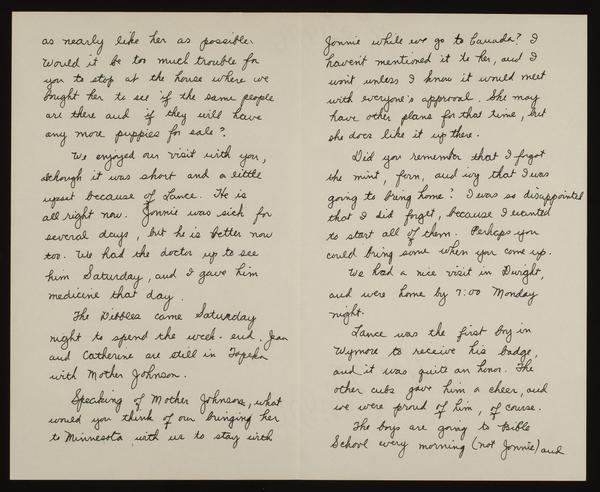 as nearly like her as possible.
Would it be too much trouble for
you to stop at the house where we
bought her to see if the same people
are there and if they will have
any more puppies for sale?
We enjoyed our visit with you,
although it was short and a little
upset because of Lance. He is
all right now. Jonnie was sick for
several days, but he is better now
too. We had the doctor up to see
him Saturday, and I gave him
medicine that day.
The Dibbles came Saturday
night to spend the week-end. Jean
and Catherine are still in Topeka
with Mother Johnson.
Speaking of Mother Johnson, what
would you think of our bringing her
to Minnesota with us to stay with
Jonnie while we go to Canada? I
haven't mentioned it to her, and I
won't unless I know it would meet
with everyone's approval. She may
have other plans for that time, but
she does like it up there.
Did you remember that I forgot
the mint, fern, and ivy that I was
going to bring home? I was so disappointed
that I did forget, because I wanted
to start all of them. Perhaps you
could bring some when you come up.
We had a nice visit in Dwight,
and were home by 7:00 Monday
night.
Lance was the first boy in
Wymore to receive his badge,
and it was quite an honor. The
other cubs gave him a cheer, and
we were proud of him, of course.
The boys are going to Bible
School every morning (not Jonnie) and